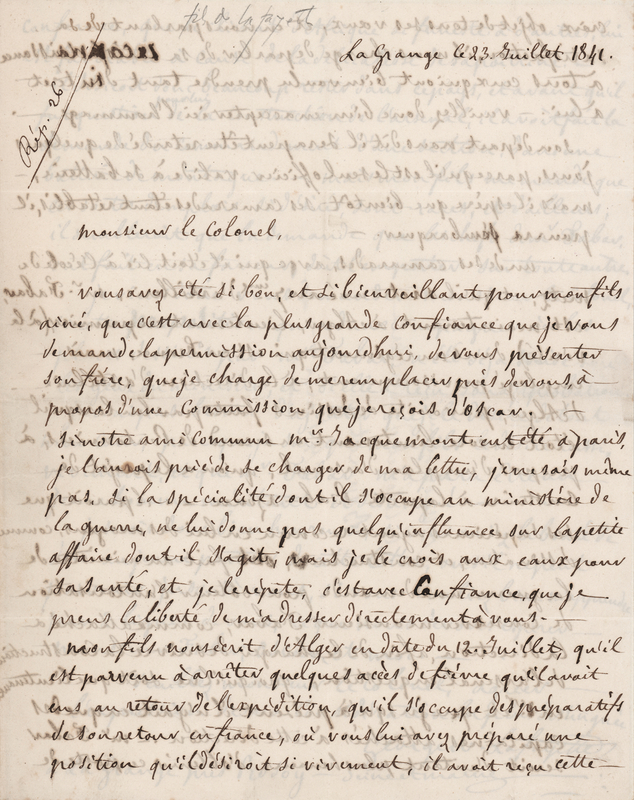 fils de Lafayette
La Grange le 23 Juillet 1841.
Rép. 26
monsieur le Colonel,
vous avez été si bon, et si bienveillant pour mon fils
ainé, que c'est avec la plus grande confiance que je vous
demande la permission aujourdhui, de vous présenter
son frère, que je charge de me remplacer près de vous, à
propos d'une Commission que je reçois d'Oscar. +
si notre ami commun mr. Jacquemont eut été à paris,
je l'aurois prié de se charger de ma lettre, je ne sais même
pas, si la spécialité dont il s'occupe au ministère de
la guerre, ne lui donne pas quelqu'influence sur la petite
affaire dont il s'agit, mais je le crois aux eaux pour
sa santé, et je le répète, c'est avec Confiance, que je
prens la liberté de m'adresser directement à vous.-
mon fils nous écrit d'Alger en date du 12. Juillet, qu'il
est parvenu à arrêter quelques accès de fièvre qu'il avoit
eus au retour de l'expédition, qu'il s'occupe des préparatifs
de son retour en france, où vous lui avez préparé une
position qu'il désiroit si vivement, il avoit reçu cette